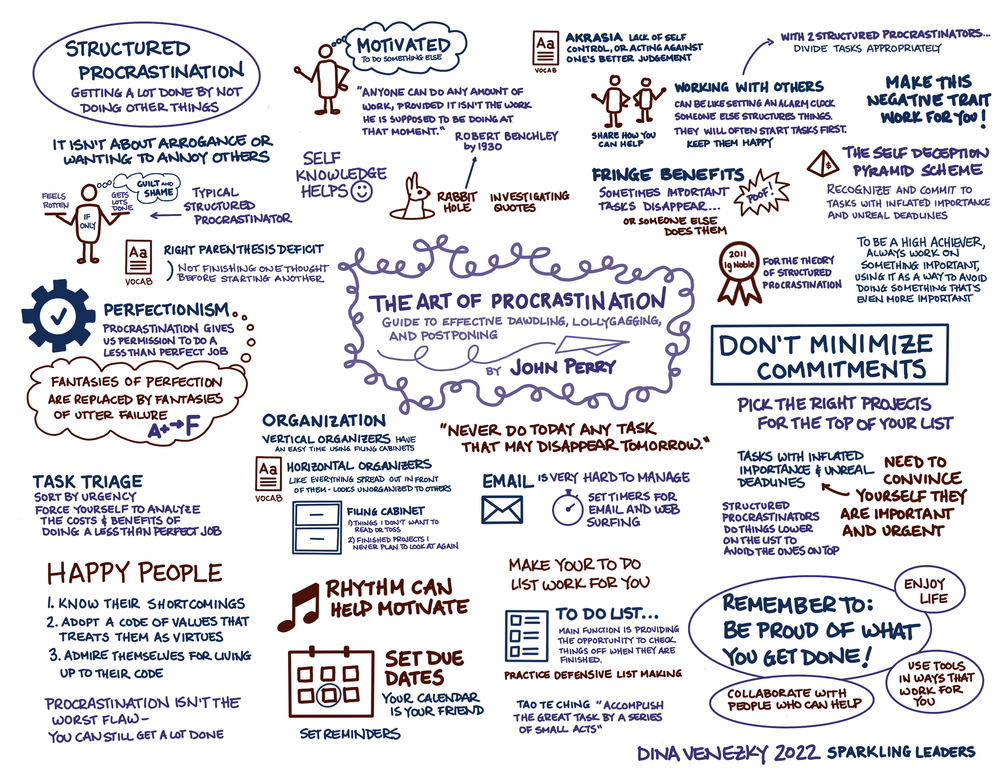 STRUCTURED
PROCRASTINATION
GETTING A LOT DONE BY NOT
DOING OTHER THINGS
IT ISN'T ABOUT ARROGANCE OR
WANTING TO ANNOY OTHERS
FEELS
ROTTEN
IF
ONLY
GETS
LOTS
DONE
GUILT AND
SHAME
TYPICAL
STRUCTURED
PROCRASTINATOR
Aa
VOCAB
RIGHT PARENTHESIS DEFICIT
) NOT FINISHING ONE THOUGHT
BEFORE STARTING ANOTHER
PERFECTIONISM
PROCRASTINATION GIVES
US PERMISSION TO DO A
LESS THAN PERFECT JOB
FANTASIES OF PERFECTION
ARE REPLACED BY FANTASIES
OF UTTER FAILURE
A+→F
TASK TRIAGE
SORT BY URGENCY
FORCE YOURSELF TO ANALYZE
THE COSTS & BENEFITS OF
DOING A LESS THAN PERFECT JOB
HAPPY PEOPLE
1. KNOW THEIR SHORTCOMINGS
2. ADOPT A CODE OF VALUES THAT
TREATS THEM AS VIRTUES
3. ADMIRE THEMSELVES FOR LIVING
UP TO THEIR CODE
PROCRASTINATION ISN'T THE
WORST FLAW-
YOU CAN STILL GET A LOT DONE
MOTIVATED
TO DO SOMETHING ELSE
"ANYONE CAN DO ANY AMOUNT OF
WORK, PROVIDED IT ISN'T THE WORK
HE IS SUPPOSED TO BE DOING AT
THAT MOMENT."
ROBERT BENCHLEY
by 1930
SELF
KNOWLEDGE
HELPS
RABBIT
HOLE
INVESTIGATING
QUOTES
THE ART OF PROCRASTINATION
GUIDE TO EFFECTIVE DAWDLING, LOLLYGAGGING,
AND POSTPONING
BY JOHN PERRY
"NEVER DO TODAY ANY TASK
THAT MAY DISAPPEAR TOMORROW."
ORGANIZATION
VERTICAL ORGANIZERS HAVE
AN EASY TIME USING FILING CABINETS
Aa
VOCAB
HORIZONTAL ORGANIZERS
LIKE EVERYTHING SPREAD OUT IN FRONT
OF THEM - LOOKS UNORGANIZED TO OTHERS
FILING CABINET
1) THINGS I DON'T WANT TO
READ OR TOSS
2) FINISHED PROJECTS I
NEVER PLAN TO LOOK AT AGAIN
EMAIL IS VERY HARD TO MANAGE
SET TIMERS FOR
EMAIL AND WEB
SURFING
RHYTHM CAN
HELP MOTIVATE
SET DUE
DATES
YOUR CALENDAR
IS YOUR FRIEND
SET REMINDERS
MAKE YOUR TO DO
LIST WORK FOR YOU
TO DO LIST...
MAIN FUNCTION IS PROVIDING
THE OPPORTUNITY TO CHECK
THINGS OFF WHEN THEY ARE
FINISHED.
PRACTICE DEFENSIVE LIST MAKING
TAO TE CHING "ACCOMPLISH
THE GREAT TASK BY A SERIES
OF SMALL ACTS"
Aa
VOCAB
AKRASIA LACK OF SELF
CONTROL, OR ACTING AGAINST
ONE'S BETTER JUDGEMENT
WITH 2 STRUCTURED PROCRASTINATORS...
DIVIDE TASKS APPROPRIATELY
SHARE HOW YOU
CAN HELP
WORKING WITH OTHERS
CAN BE LIKE SETTING AN ALARM CLOCK
SOMEONE ELSE STRUCTURES THINGS.
THEY WILL OFTEN START TASKS FIRST.
KEEP THEM HAPPY
MAKE THIS
NEGATIVE TRAIT
WORK FOR YOU!
FRINGE BENEFITS
SOMETIMES IMPORTANT
TASKS DISAPPEAR....
OR SOMEONE ELSE
DOES THEM
POOF!
$
THE SELF DECEPTION
PYRAMID SCHEME
RECOGNIZE AND COMMIT TO
TASKS WITH INFLATED IMPORTANCE
AND UNREAL DEADLINES
2011
Ig Noble
FOR THE THEORY
OF STRUCTURED
PROCRASTINATION
TO BE A HIGH ACHIEVER,
ALWAYS WORK ON
SOMETHING IMPORTANT,
USING IT AS A WAY TO AVOID
DOING SOMETHING THAT'S
EVEN MORE IMPORTANT
DON'T MINIMIZE
COMMITMENTS
PICK THE RIGHT PROJECTS
FOR THE TOP OF YOUR LIST
TASKS WITH INFLATED
IMPORTANCE & UNREAL
DEADLINES
NEED TO
CONVINCE
YOURSELF THEY
ARE IMPORTANT
AND URGENT
STRUCTURED
PROCRASTINATORS
DO THINGS LOWER
ON THE LIST TO
AVOID THE ONES ON TOP
REMEMBER TO:
BE PROUD OF WHAT
YOU GET DONE!
ENJOY
LIFE
USE TOOLS
IN WAYS THAT
WORK FOR
YOU
COLLABORATE WITH
PEOPLE WHO CAN HELP
DINA VENEZKY 2022 SPARKLING LEADERS